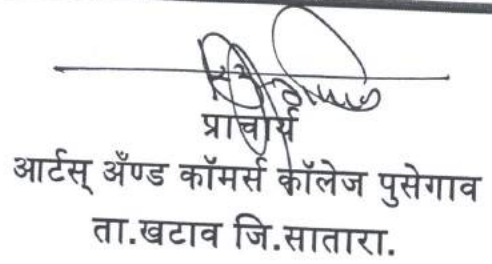 प्राचार्य
आर्टस् अँण्ड कॉमर्स कॉलेज पुसेगाव
ता.खटाव जि.सातारा.